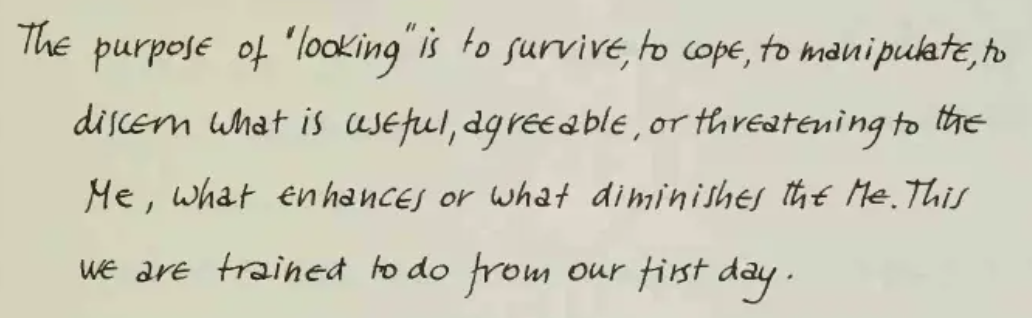 The purpose of "looking" is to survive, to cope, to manipulate, to
discern what is useful, agreeable, or threatening to the
Me, what enhances or what diminishes the Me. This
we are trained to do from our first day.